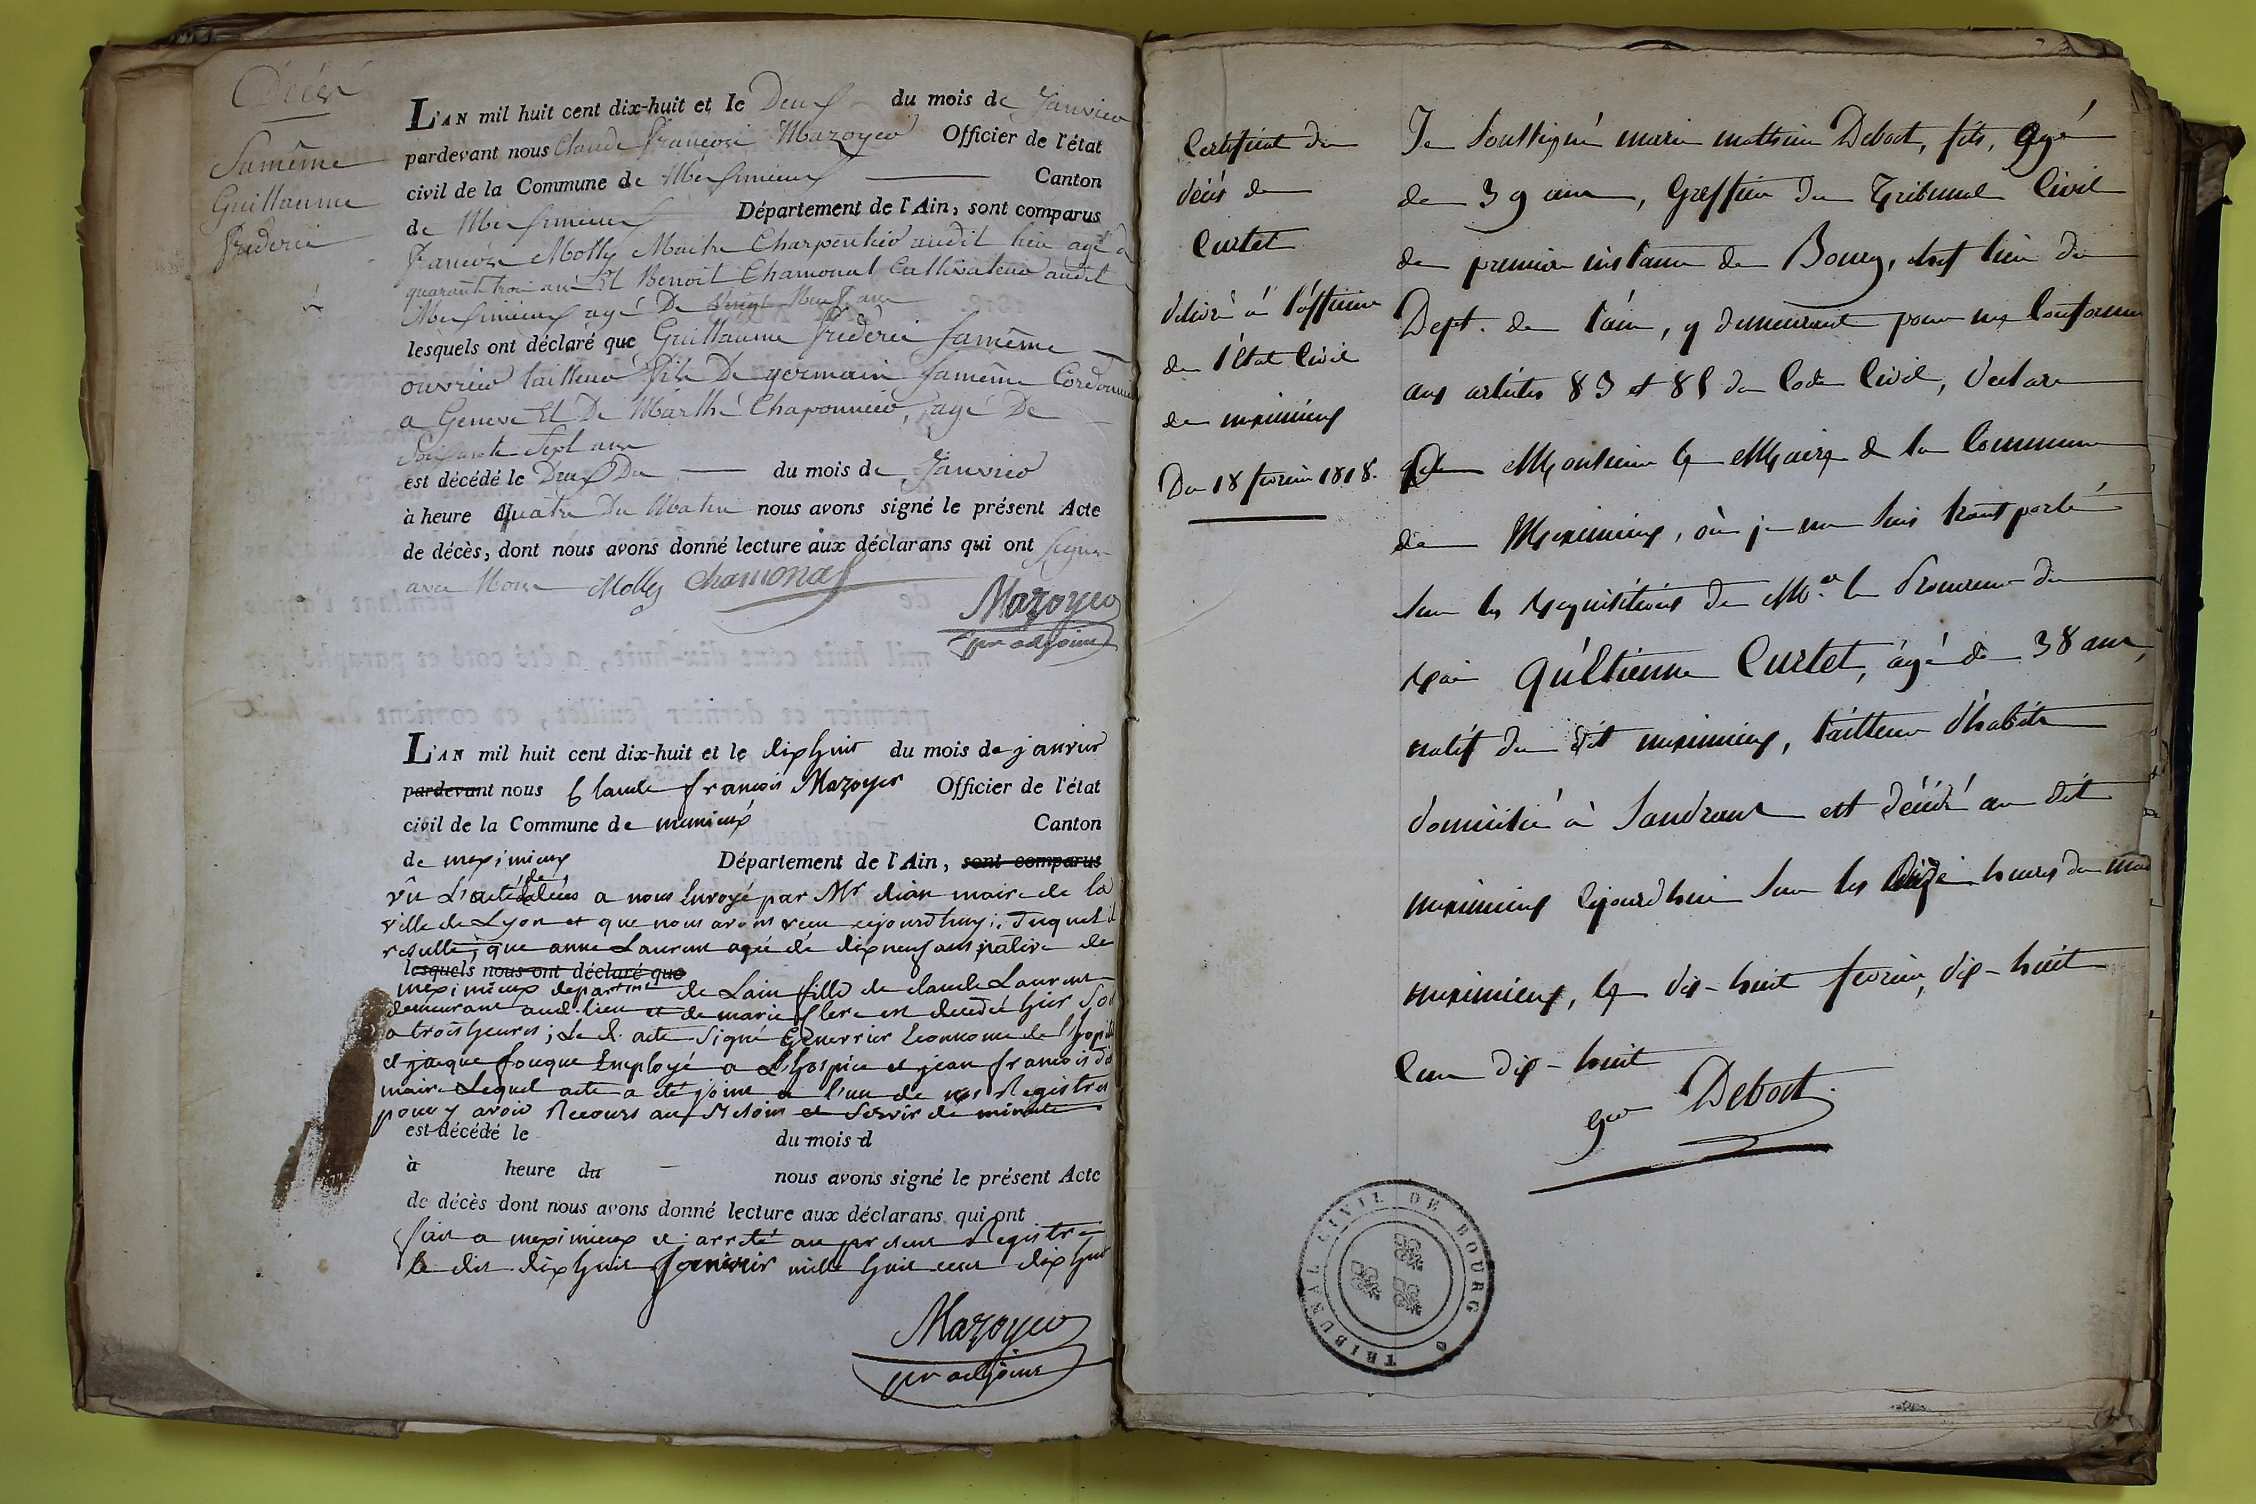 Décès
Famême
Guillaume
Frederic
L'AN mil huit cent dix-huit et le Deux du mois de Janvier
pardevant nous Claude françois Mazoyer Officier de l'état
civil de la Commune de Meximieux Canton
de Meximieux Département de l'Ain, sont comparus
François Molly Maitre Charpentier audit lieu agé de
quarante trois ans Et Benoit Chamonal Cultivateur audit
Meximieux agé De vingt Neuf ans
lesquels ont déclaré que Guillaume frederic famême
ouvrier tailleur fils De germain famême Cordonnier
a Geneve Et De Marthe Chaponnier, agé De
Soixante Sept ans
est décédé le Deux Du du mois de Janvier
à heure quatre Du Matin nous avons signé le présent Acte
de décès, dont nous avons donné lecture aux déclarans qui ont signé
avec Nous Molly Chamonal
Mazoyer
per adjoint
L'AN mil huit cent dix-huit et le dixhuit du mois de janvier
pardevant nous Claude françois Mazoyer Officier de l'état
civil de la Commune de meximieux Canton
de meximieux Département de l'Ain, sont comparus
vû L'acte de déces a nous Envoyé par Mr maire de la
ville de Lyon et que nous avons recu cejourdhuy; Duquel il
resulte; que anne Laurent agée de dix neuf ans native de
lesquels nous ont déclaré que
meximieux departmt de Lain fille de claude Laurent
demeurant aud. lieu et de marie Clerc est decedée hier Soir
a trois heures; Le d. acte Signé Econome de l'hopital
et jacque fouque Employé a L'hospice et jean francois
maire Lequel acte a été joint a l'un de nos Registres
pour y avoir Recours au Besoin et Servir de minute
est décédé le du mois d
à heure du nous avons signé le présent Acte
de décès dont nous avons donné lecture aux déclarans qui ont
fait a meximieux et arreté au present Registre
le dit dixhuit janvier mille huit cent dixhuit
Mazoyer
per adjoint
Certificat du
décés de
Curtet
délivré à l'officier
de l'état Civil
de meximieux
Du 18 fevrier 1818.
Je Soussigné marie mathieu Debost, fils, agé
de 39 ans, Greffier du Tribunal Civil
de premiere instance de Bourg, chef lieu du
Dept. de l'ain, y demeurant pour me Conformer
aux articles 83 et 85 du Code Civil, déclare
à Monsieur le Maire de la Commune
de Meximieux, où je me suis transporté
sur les réquisitions de Mr. le Procureur du
Roi qu'Etienne Curtet, âgé de 38 ans,
natif du dit meximieux, tailleur d'habits
domicilié à Sandrans est décédé au dit
meximieux cejourd'hui sur les heures du matin
meximieux, le dix-huit fevrier, dix-huit
Cent dix-huit
Debost
ger
TRIBUNAL CIVIL DE BOURG